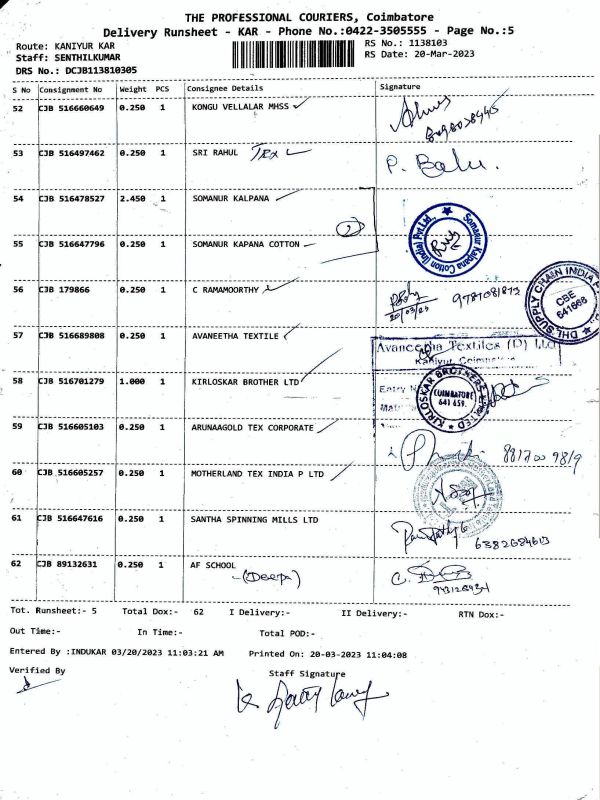 THE PROFESSIONAL COURIERS, Coimbatore
Delivery Runsheet - KAR - Phone No.:0422-3505555 - Page No.:5
Route: KANIYUR KAR
RS No.: 1138103
Staff: SENTHILKUMAR
RS Date: 20-Mar-2023
DRS No.: DCJB113810305
S No Consignment No Weight PCS Consignee Details Signature
52 CJB 516660649 0.250 1 KONGU VELLALAR MHSS
53 CJB 516497462 0.250 1 SRI RAHUL Tex P. Balu.
54 CJB 516478527 2.450 1 SOMANUR KALPANA
2
Somanur Kalpana Cotton (India) Pvt.Ltd.,
55 CJB 516647796 0.250 1 SOMANUR KAPANA COTTON
56 CJB 179866 0.250 1 C RAMAMOORTHY
20/03/23
DHL SUPPLY CHAIN INDIA P
CBE
641668
57 CJB 516689808 0.250 1 AVANEETHA TEXTILE
Avaneetha Textiles (P) Ltd
Kaniyur, Coimbatore
58 CJB 516701279 1.000 1 KIRLOSKAR BROTHER LTD
Entry N
KIRLOSKAR BROTHERS LIMITED
COIMBATORE
641 659.
59 CJB 516605103 0.250 1 ARUNAAGOLD TEX CORPORATE
60 CJB 516605257 0.250 1 MOTHERLAND TEX INDIA P LTD
61 CJB 516647616 0.250 1 SANTHA SPINNING MILLS LTD
62 CJB 89132631 0.250 1 AF SCHOOL
(Deepa)
Tot. Runsheet:- 5 Total Dox:- 62 I Delivery:- II Delivery:- RTN Dox:-
Out Time:- In Time:- Total POD:-
Entered By :INDUKAR 03/20/2023 11:03:21 AM Printed On: 20-03-2023 11:04:08
Verified By Staff Signature